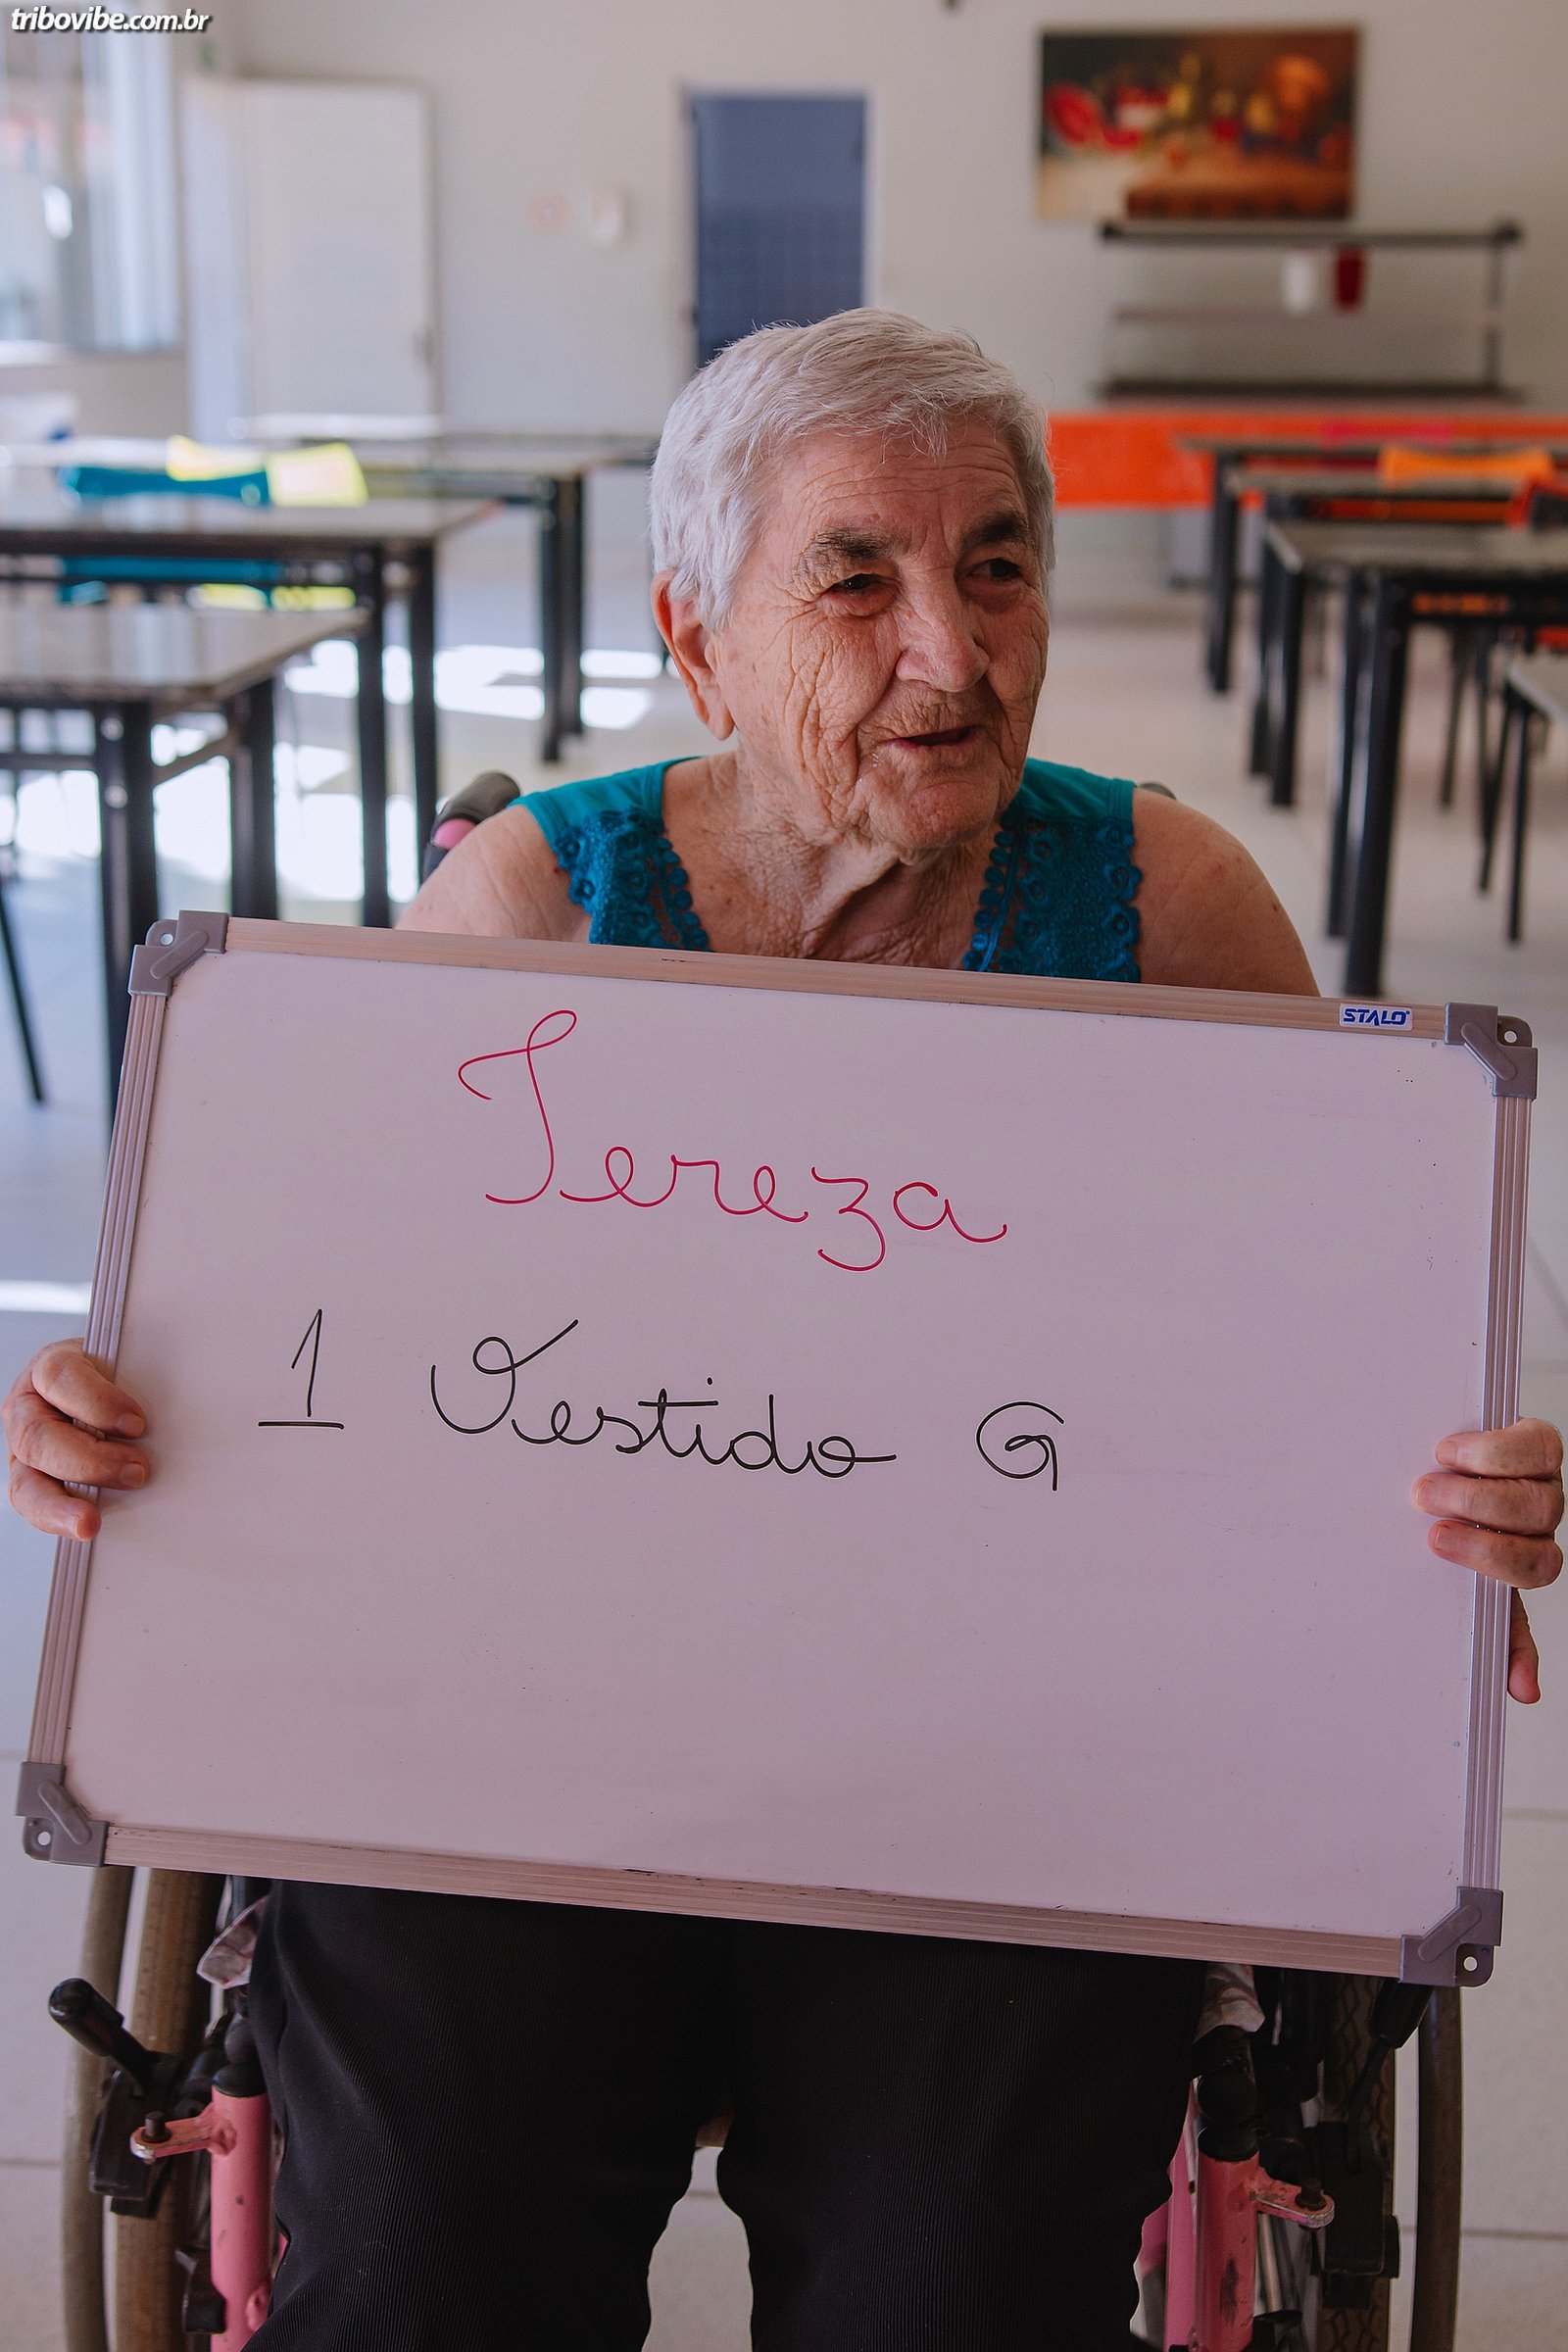 tribovibe.com.br
STALO
Tereza
1 Vestido G